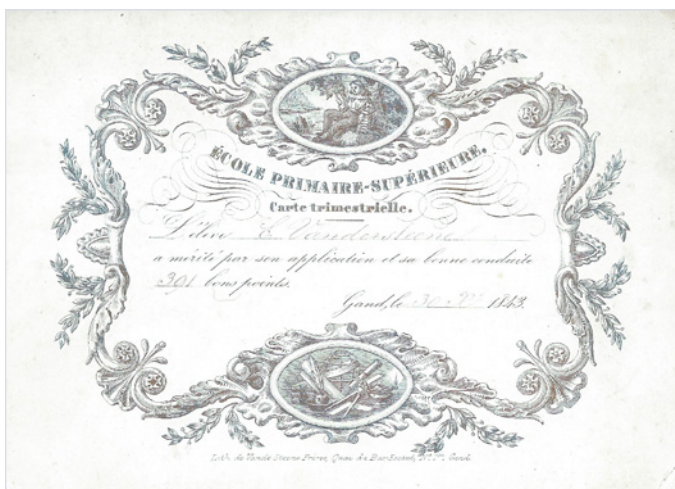 ÉCOLE PRIMAIRE-SUPÉRIEURE.
Carte trimestrielle.
L'élève E. Vandersteene
a mérité par son application et sa bonne conduite
391 bons points.
Gand, le 30 1843.
Lith. de Vande Steene Frères, Quai du Bas-Escaut, Gand.